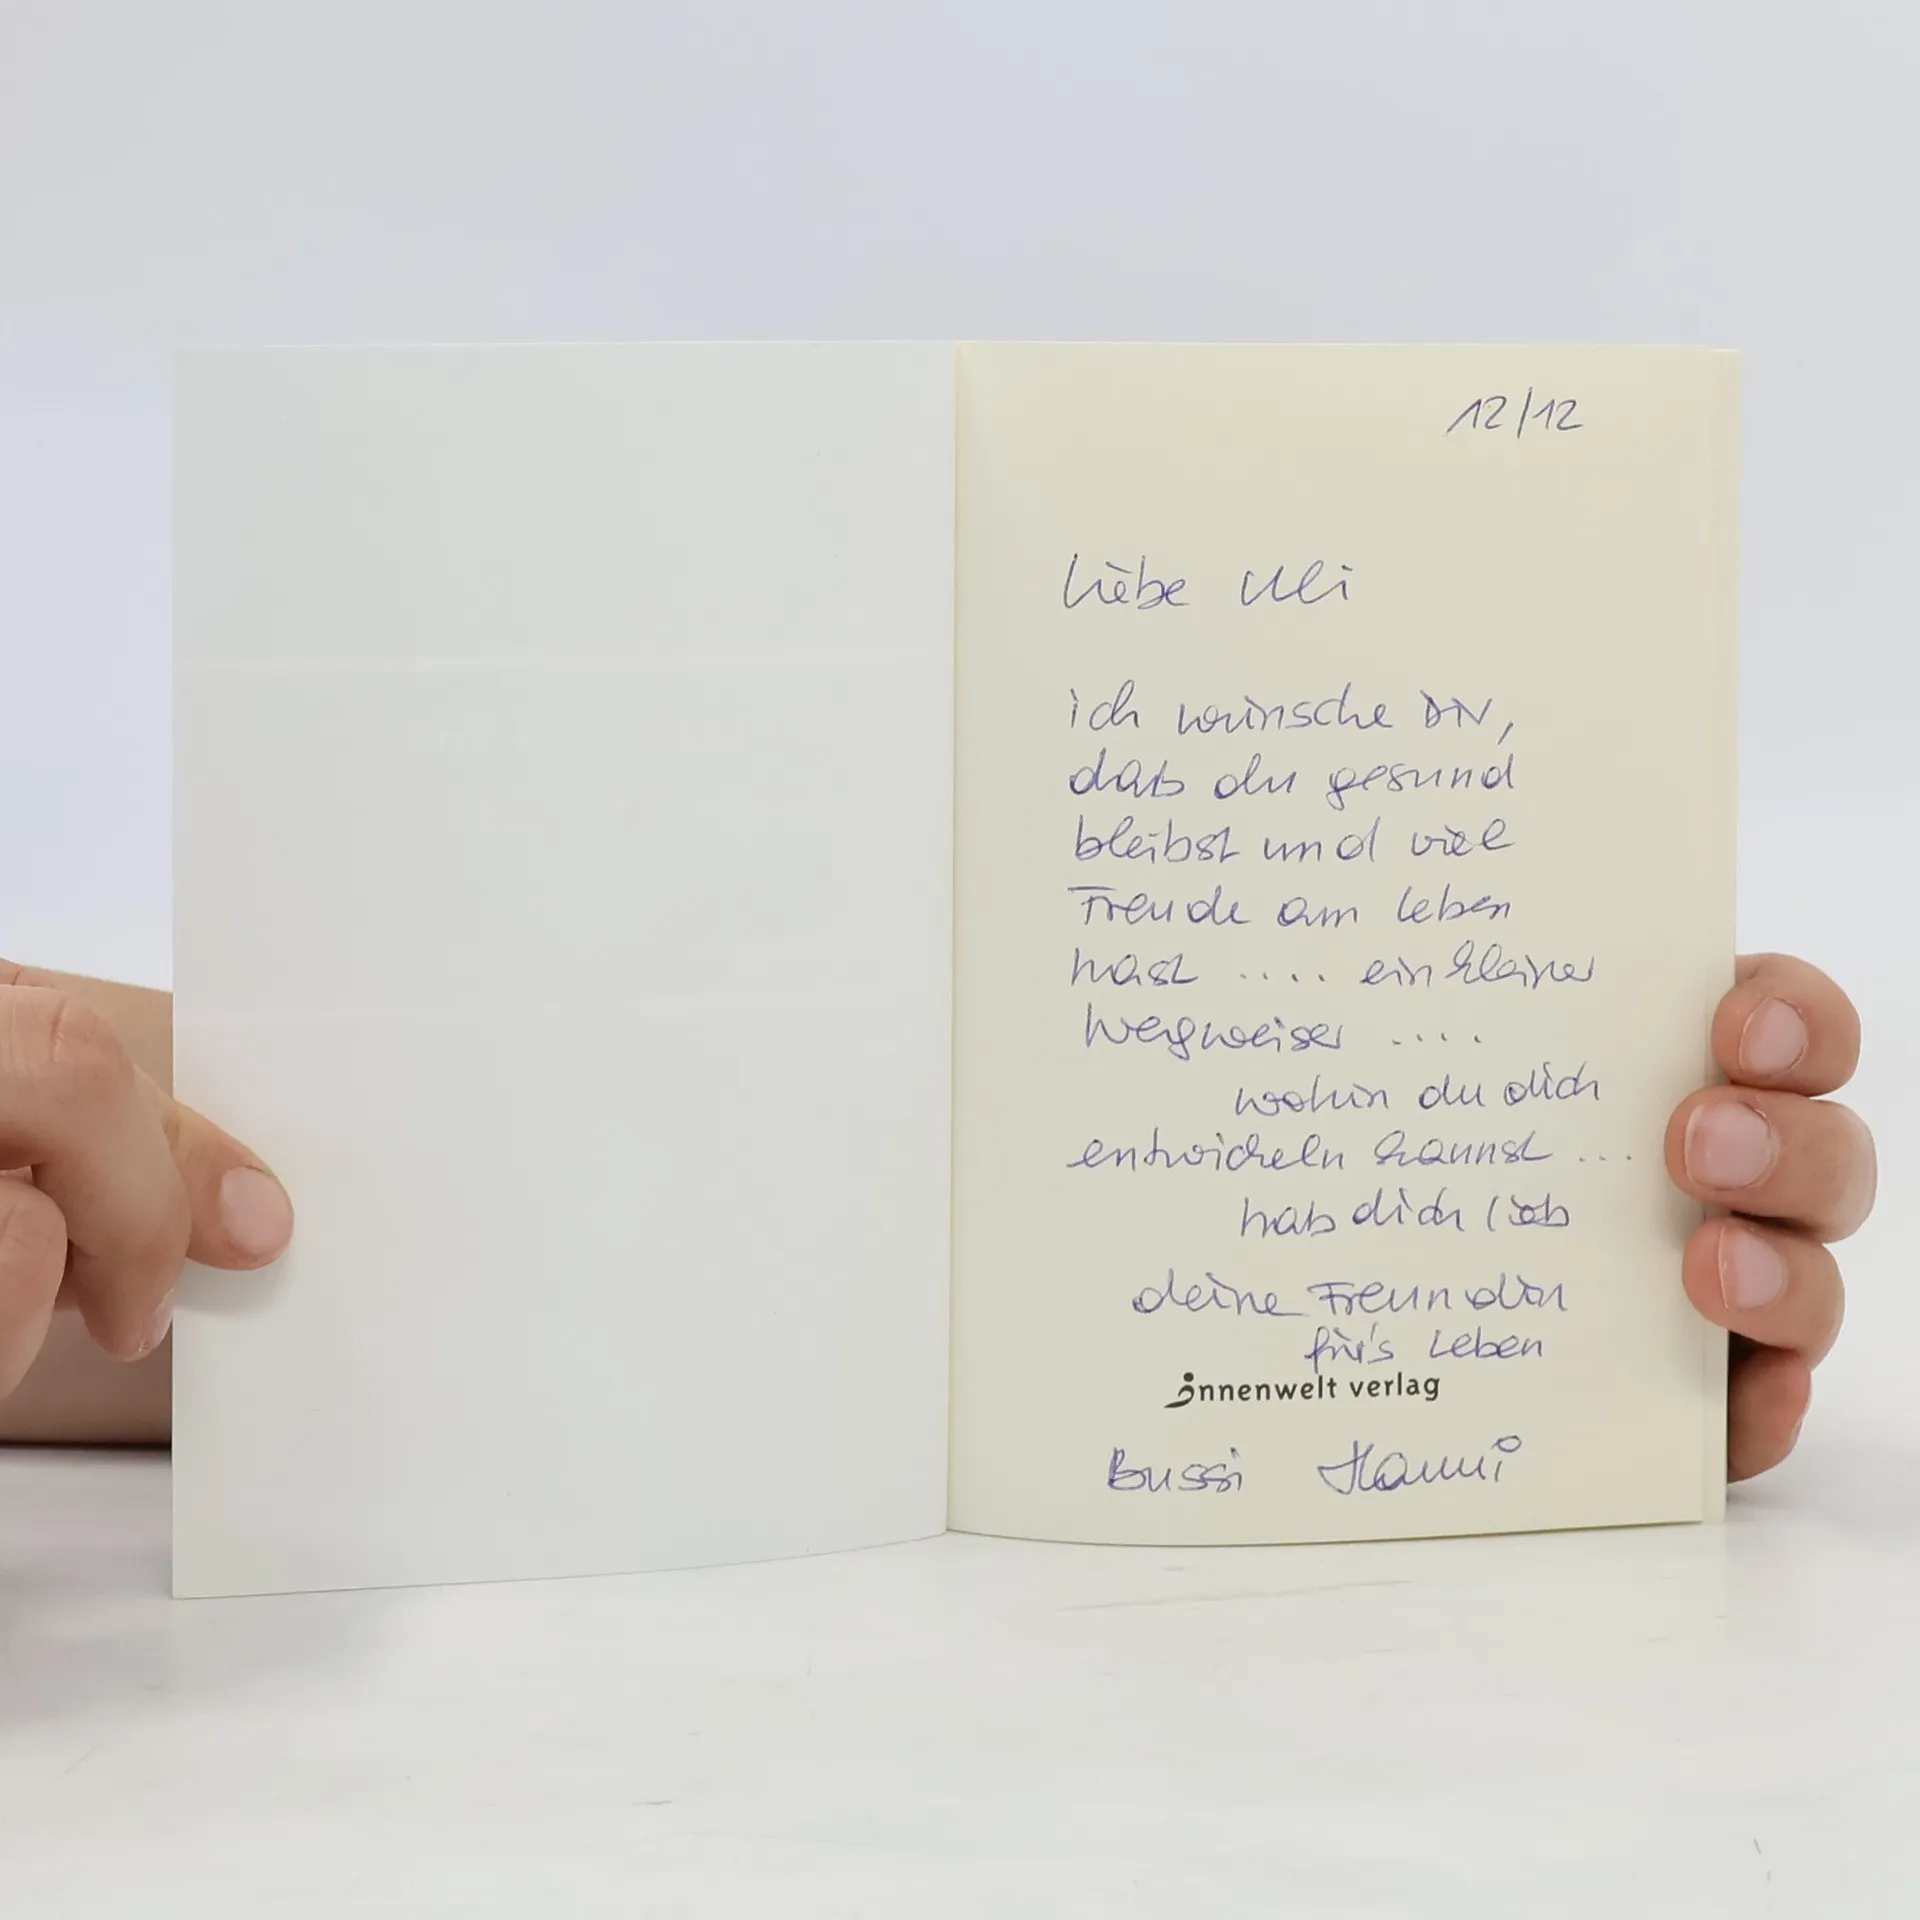 12/12
Liebe Uli
ich wünsche Dir,
daß du gesund
bleibst und viel
Freude am Leben
hast .... ein kleiner
Wegweiser ....
wohin du dich
entwickeln kannst ...
hab dich lieb
deine Freundin
für's Leben
innenwelt verlag
Bussi Hanni